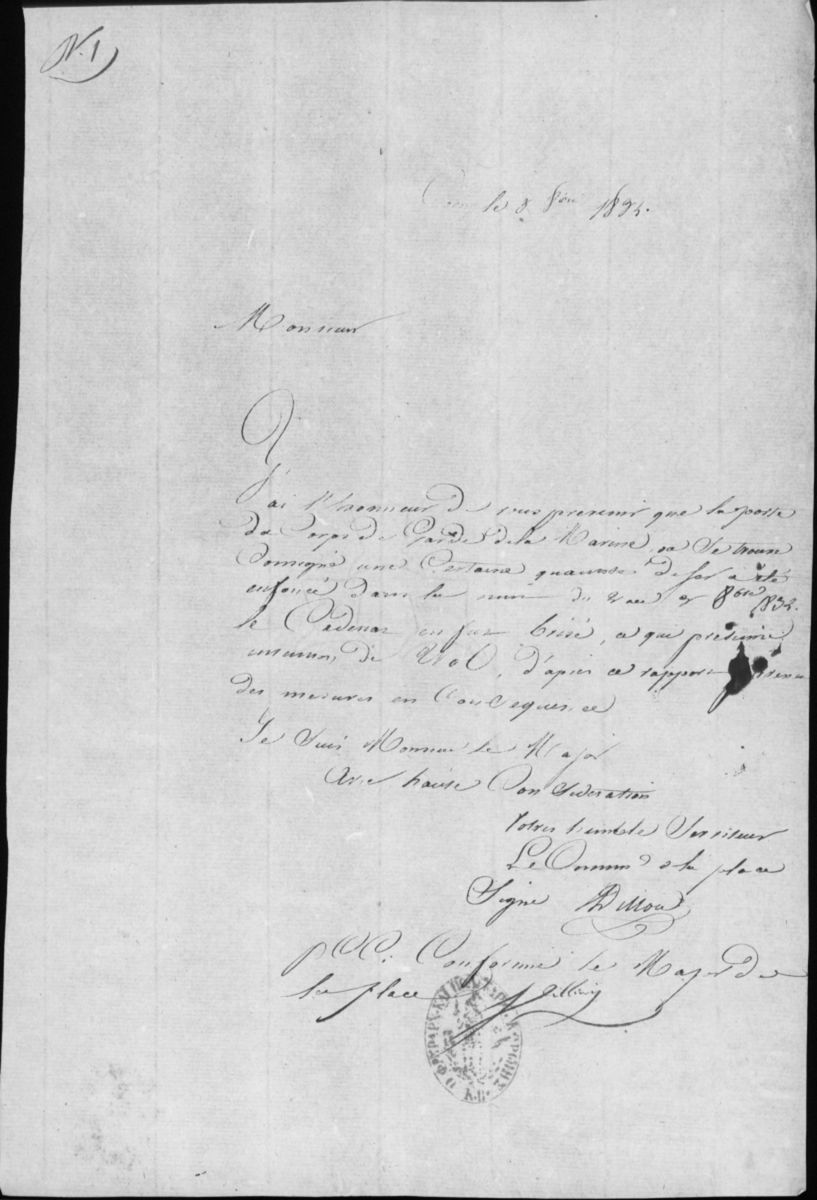 N. 1
le 8 8bre 1832.
Monsieur
J'ai l'honneur de vous prevenir que la porte
du Corps de Garde de la Marine, ou se trouve
Consigné une Certaine quantité de fer a été
enfoncé dans la nuit du au 8bre 1832.
le Cadenas en fer brisé, ce qui présume
de Vol, d'apres ce rapport
des mesures en Consequence
Je Suis Monsieur le Major
Avec haute Consideration
Votre humble Serviteur
Le Comm.d de la place
Signé Dillon
p. C. C. Conforme le Major de
la place